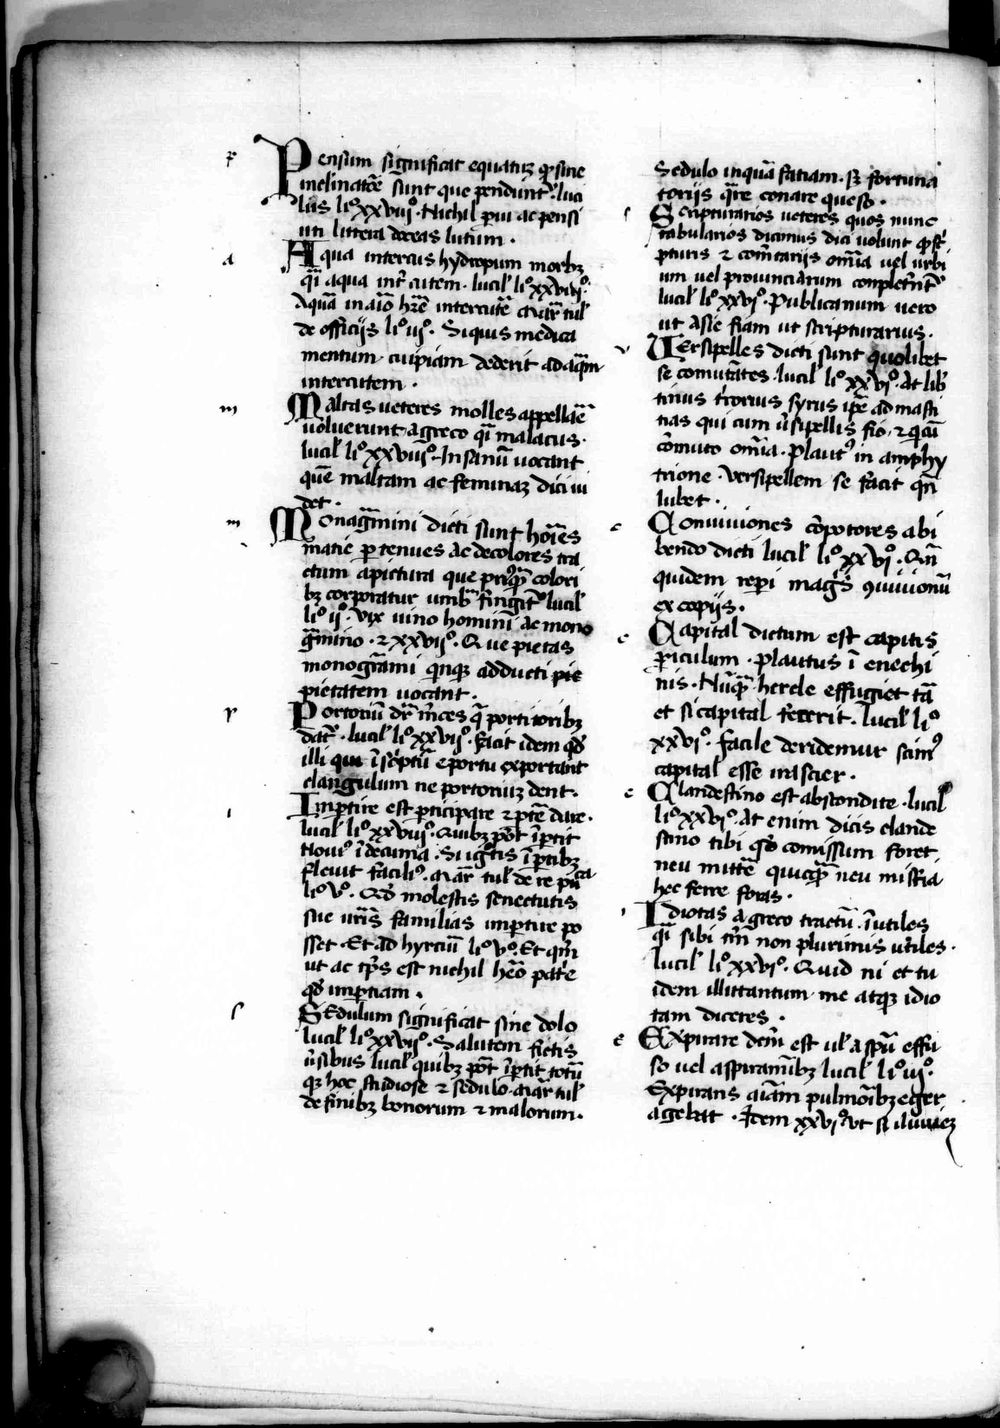 p Pensum significat equatuꝫ qꝫ sine
inclinatõe sunt que pendunt᷒ luci
lius liº xxviijº. Nichil pivi ac pensi
uti littera doceas lutum.
a Aqua intercus hydropum morbꝫ
qĩ aqua int᷒ cutem. lucil̉ liº xxviijº.
Aquã in aĩo hr̃e intercutẽ Mar̃ tul̉
de officijs liº iijº. Siquis medica
mentum cuipiam dederit ad aqm̃
intercutem.
m Maltas ueteres molles appellaẽ
uoluerunt a greco qĩ malacus.
lucil̉ liº xxviijº. Insanũ uocant
quẽ maltam ac feminaꝫ dici ui
det.
m Monagm̃ini dicti sunt hoĩes
macie ꝑtenues ac decolores tra
ctum a pictura que priꝰqꝫ̃ colori
bꝫ corporatur umb̃ fingit᷒ lucil̉
liº ijº. Vix uino homini ac mono
gm̃ino. ⁊ xxvijº. Que pietas
monogrãmi qinqꝫ adducti pie
pietatem uocant.
p Portoriũ dr̃ m̃ces q̃ portitoribꝫ
dat᷒. lucil̉ liº xxvijº. Facit idem qd̃
illi qui ĩscriptũ e portu exportant
clangulum ne portoriuꝫ dent.
i Imꝑtire est ꝑticipare ⁊ ꝑtẽ dare.
lucil̉ liº xxviijº. Quibꝫ põt ĩꝑtit
fleuit facilꝰ. Mar̃ tul̉ de re pũca
liº vº. Qd̃ molestis senectutis
sue ur̃is familias imꝑtire po
sset. Et ad hyrciũ liº vº. Et qm̃
ut ac tp̃s est nichil heõ pate
qd̃ imꝑtiam.
s Sedulum significat sine dolo
lucil̉ liº xxviijº. Salutem fictis
ũsibus lucil̉ quibꝫ põt ĩꝑtit totũ
qꝫ hoc studiose ⁊ sedulo. Mar̃ tul̉
de finibꝫ bonorum ⁊ malorum.
Sedulo inquã fatiam. sꝫ fortuna
torijs qr̃e conare queso.
s Scripturarios ueteres quos nunc
tabularios dicimus dici uolunt qꝫ sc̃
pturis ⁊ com̃tarijs om̃ia uel urbi
um uel prouinciarum conplet̃nt᷒
lucil̉ liº xxviº. Publicanum uero
ut asie fiam ut scripturarius.
v Versipelles dicti sunt quolibet
se comutãtes. lucil̉ liº xxviº. At lib̃
tinus t̃corius syrus ip̃e ad masti
tias qui cum ũsipellis fio ⁊ qcũ
cõmuto om̃ia. Plaut᷒ in amphy
trione. versipellem se facit qñ
lubet.
c Conuiuiones cõpotores a bi
bendo dicti lucil̉ liº xxviº. Qñ
quidem reperi mag̃s ꝯuiuionũ
ex copijs.
c Capital dictum est capitis
ꝑiculum. Plautus ĩ enechi
nis. Nũqꝫ̃ hercle effugiet tã
et si capital fecerit. Lucil̉ liº
xxviº. facile deridemur scim᷒
capital esse irascier.
c Clandestino est abscondite. lucil̉
liº xxviº. At enim dicis clande
stino tibi qd̃ comissum foret
neu mittẽ quicqꝫ̃ neu mis̃ia
hec ferre foras.
i Idiotas a greco tractũ. ĩutiles
qĩ sibi tm̃ non plurimis utiles.
Lucil̉ liº xxviº. Quid ni et tu
idem illittatum me atqꝫ idio
tam diceres.
e Expirare dcm̃ est ul̉ a spũ effu
so uel aspiramĩbꝫ lucil̉ liº iijº.
Expirans aĩam pulmoĩbꝫ eger
agebat. Idem xxviº. Vt si iluuieꝫ